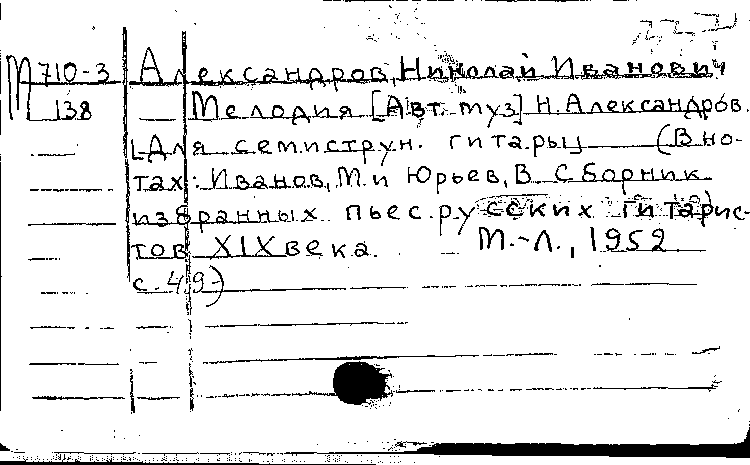 М 710-3 Александров, Николай Иванович
138 Мелодия [Авт. муз] Н. Александров.
[Для семиструн. гитары (В но-
тах: Иванов, М. и Юрьев, В. Сборник
избранных пьес русских гитарис-
тов XIX века. М.-Л., 1952
с. 49)